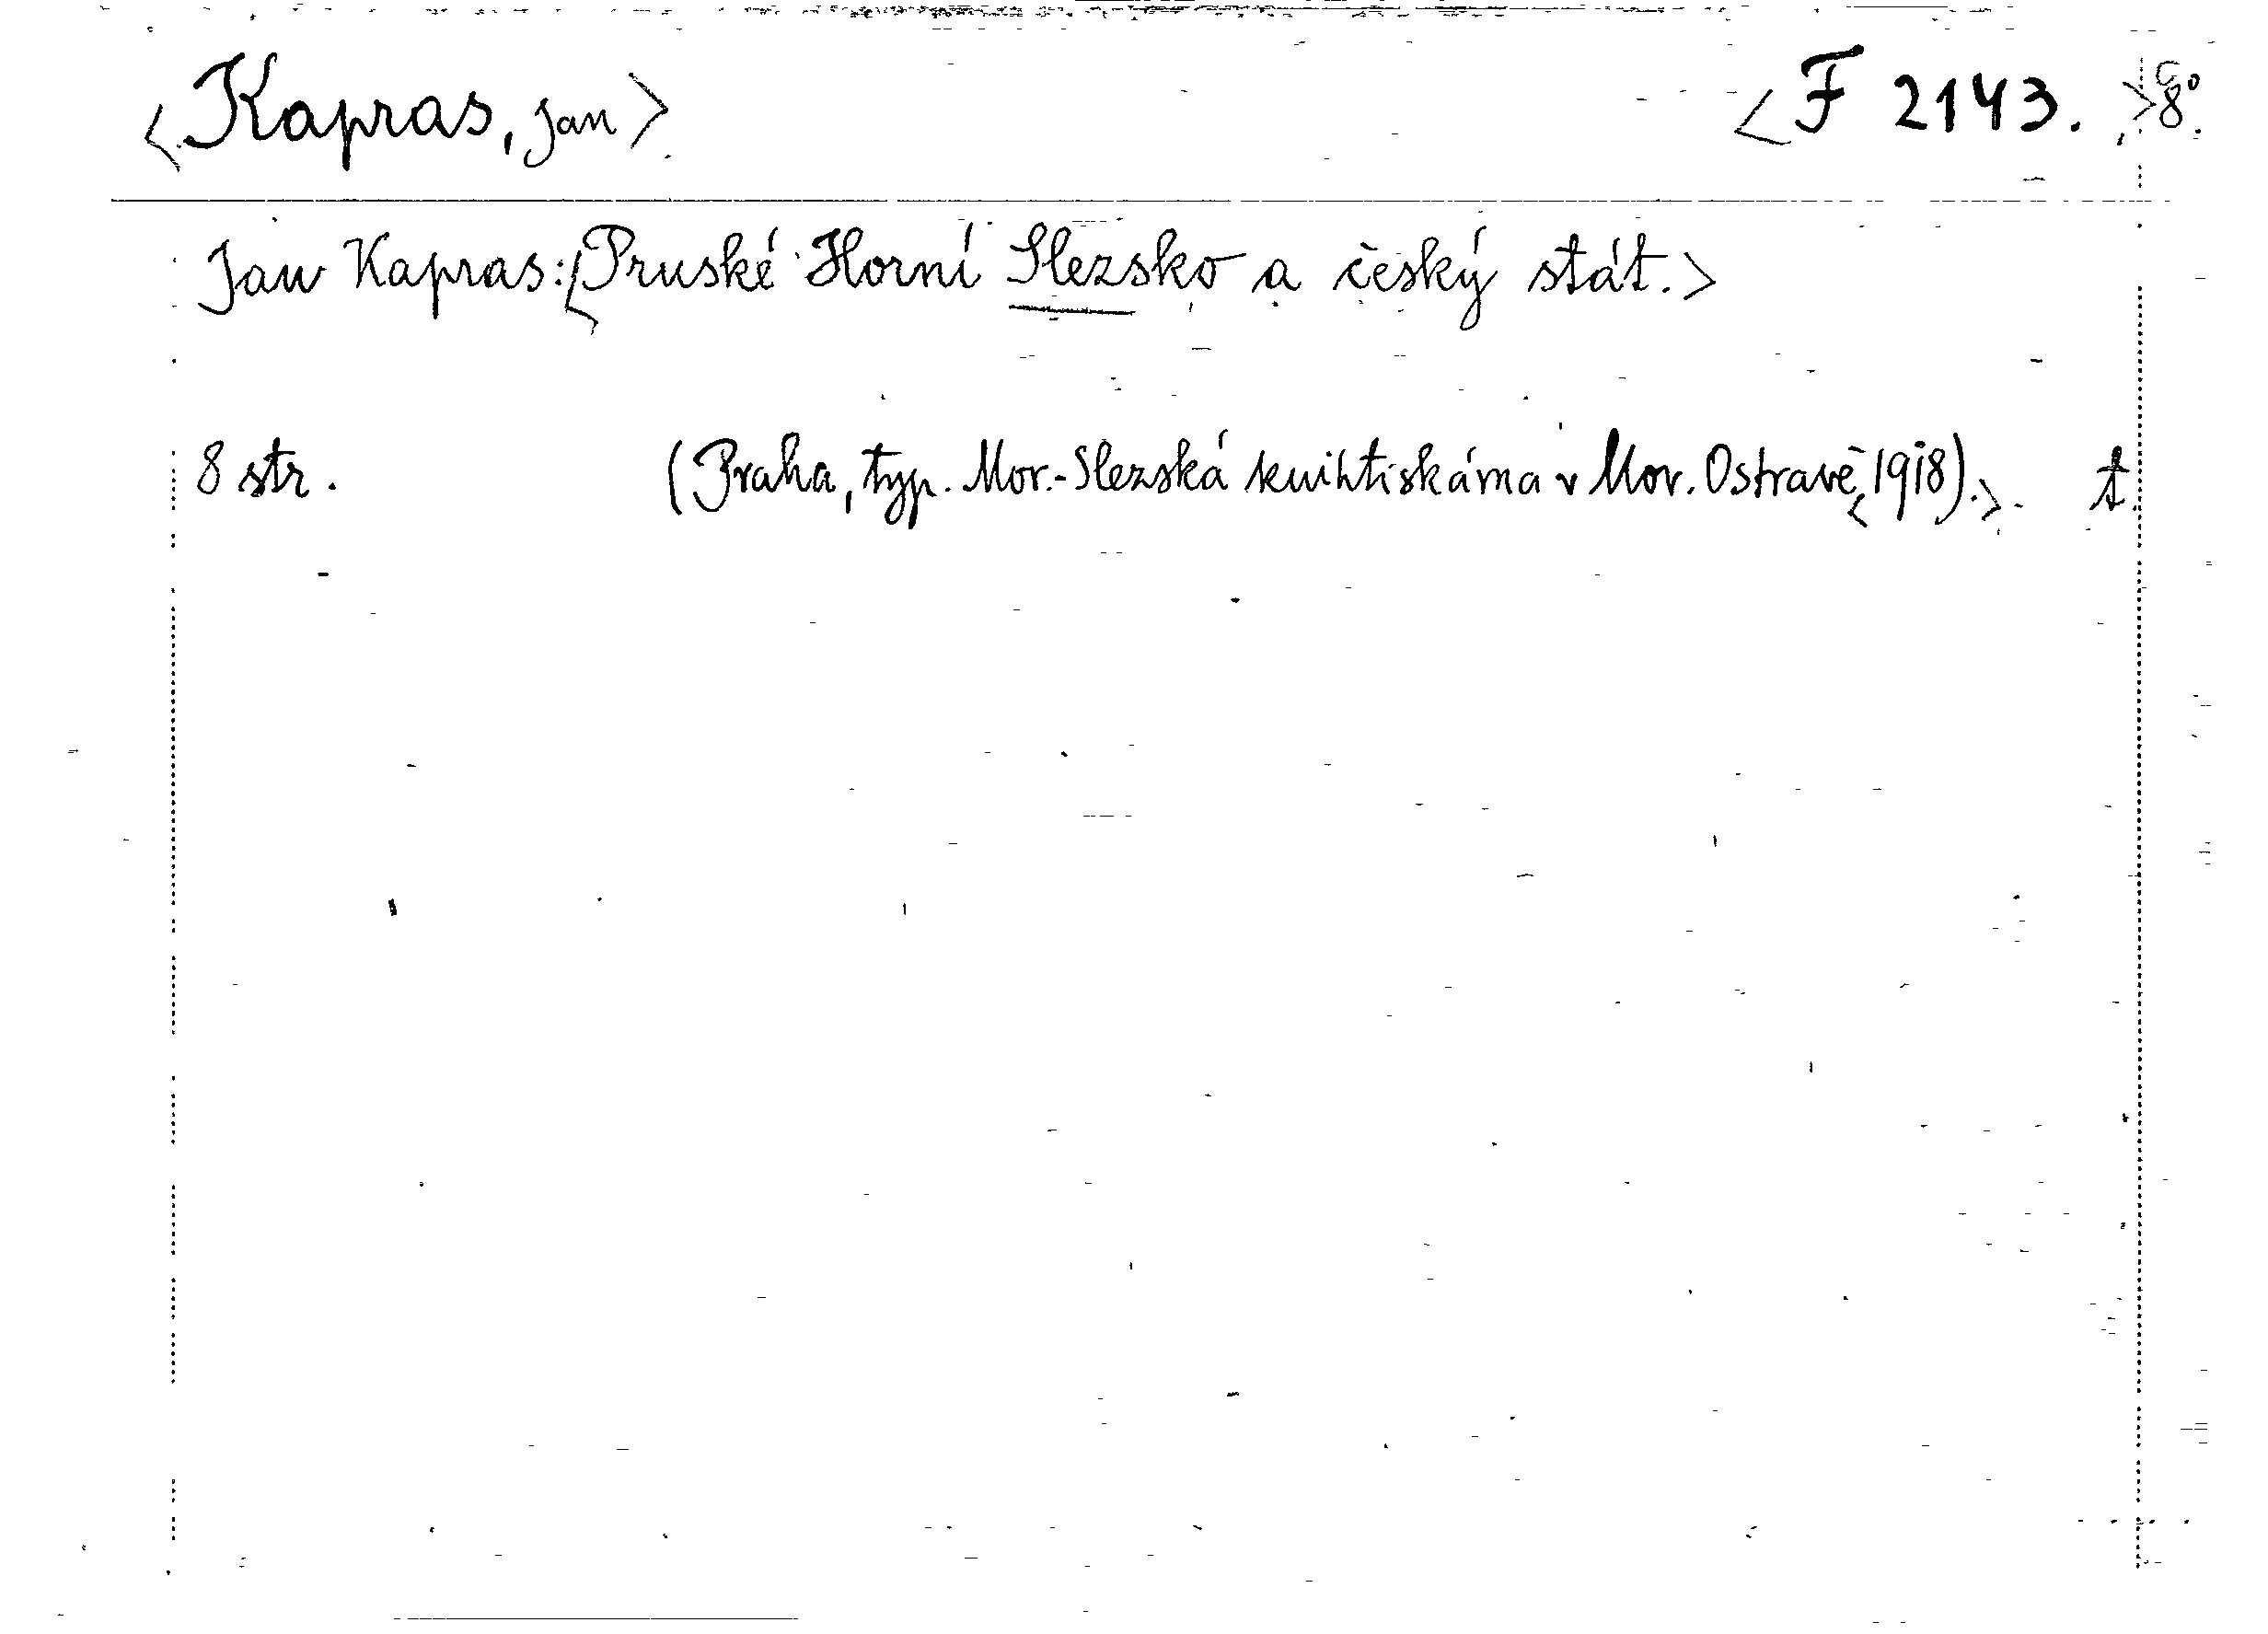 <Kapras, Jan> <F 2143.> 8°
Jan Kapras: <Pruské Horní Slezsko a český stát.>
8 str. (Praha, typ. Mor.-Slezská knihtiskárna v Mor. Ostravě, <1918).> t.